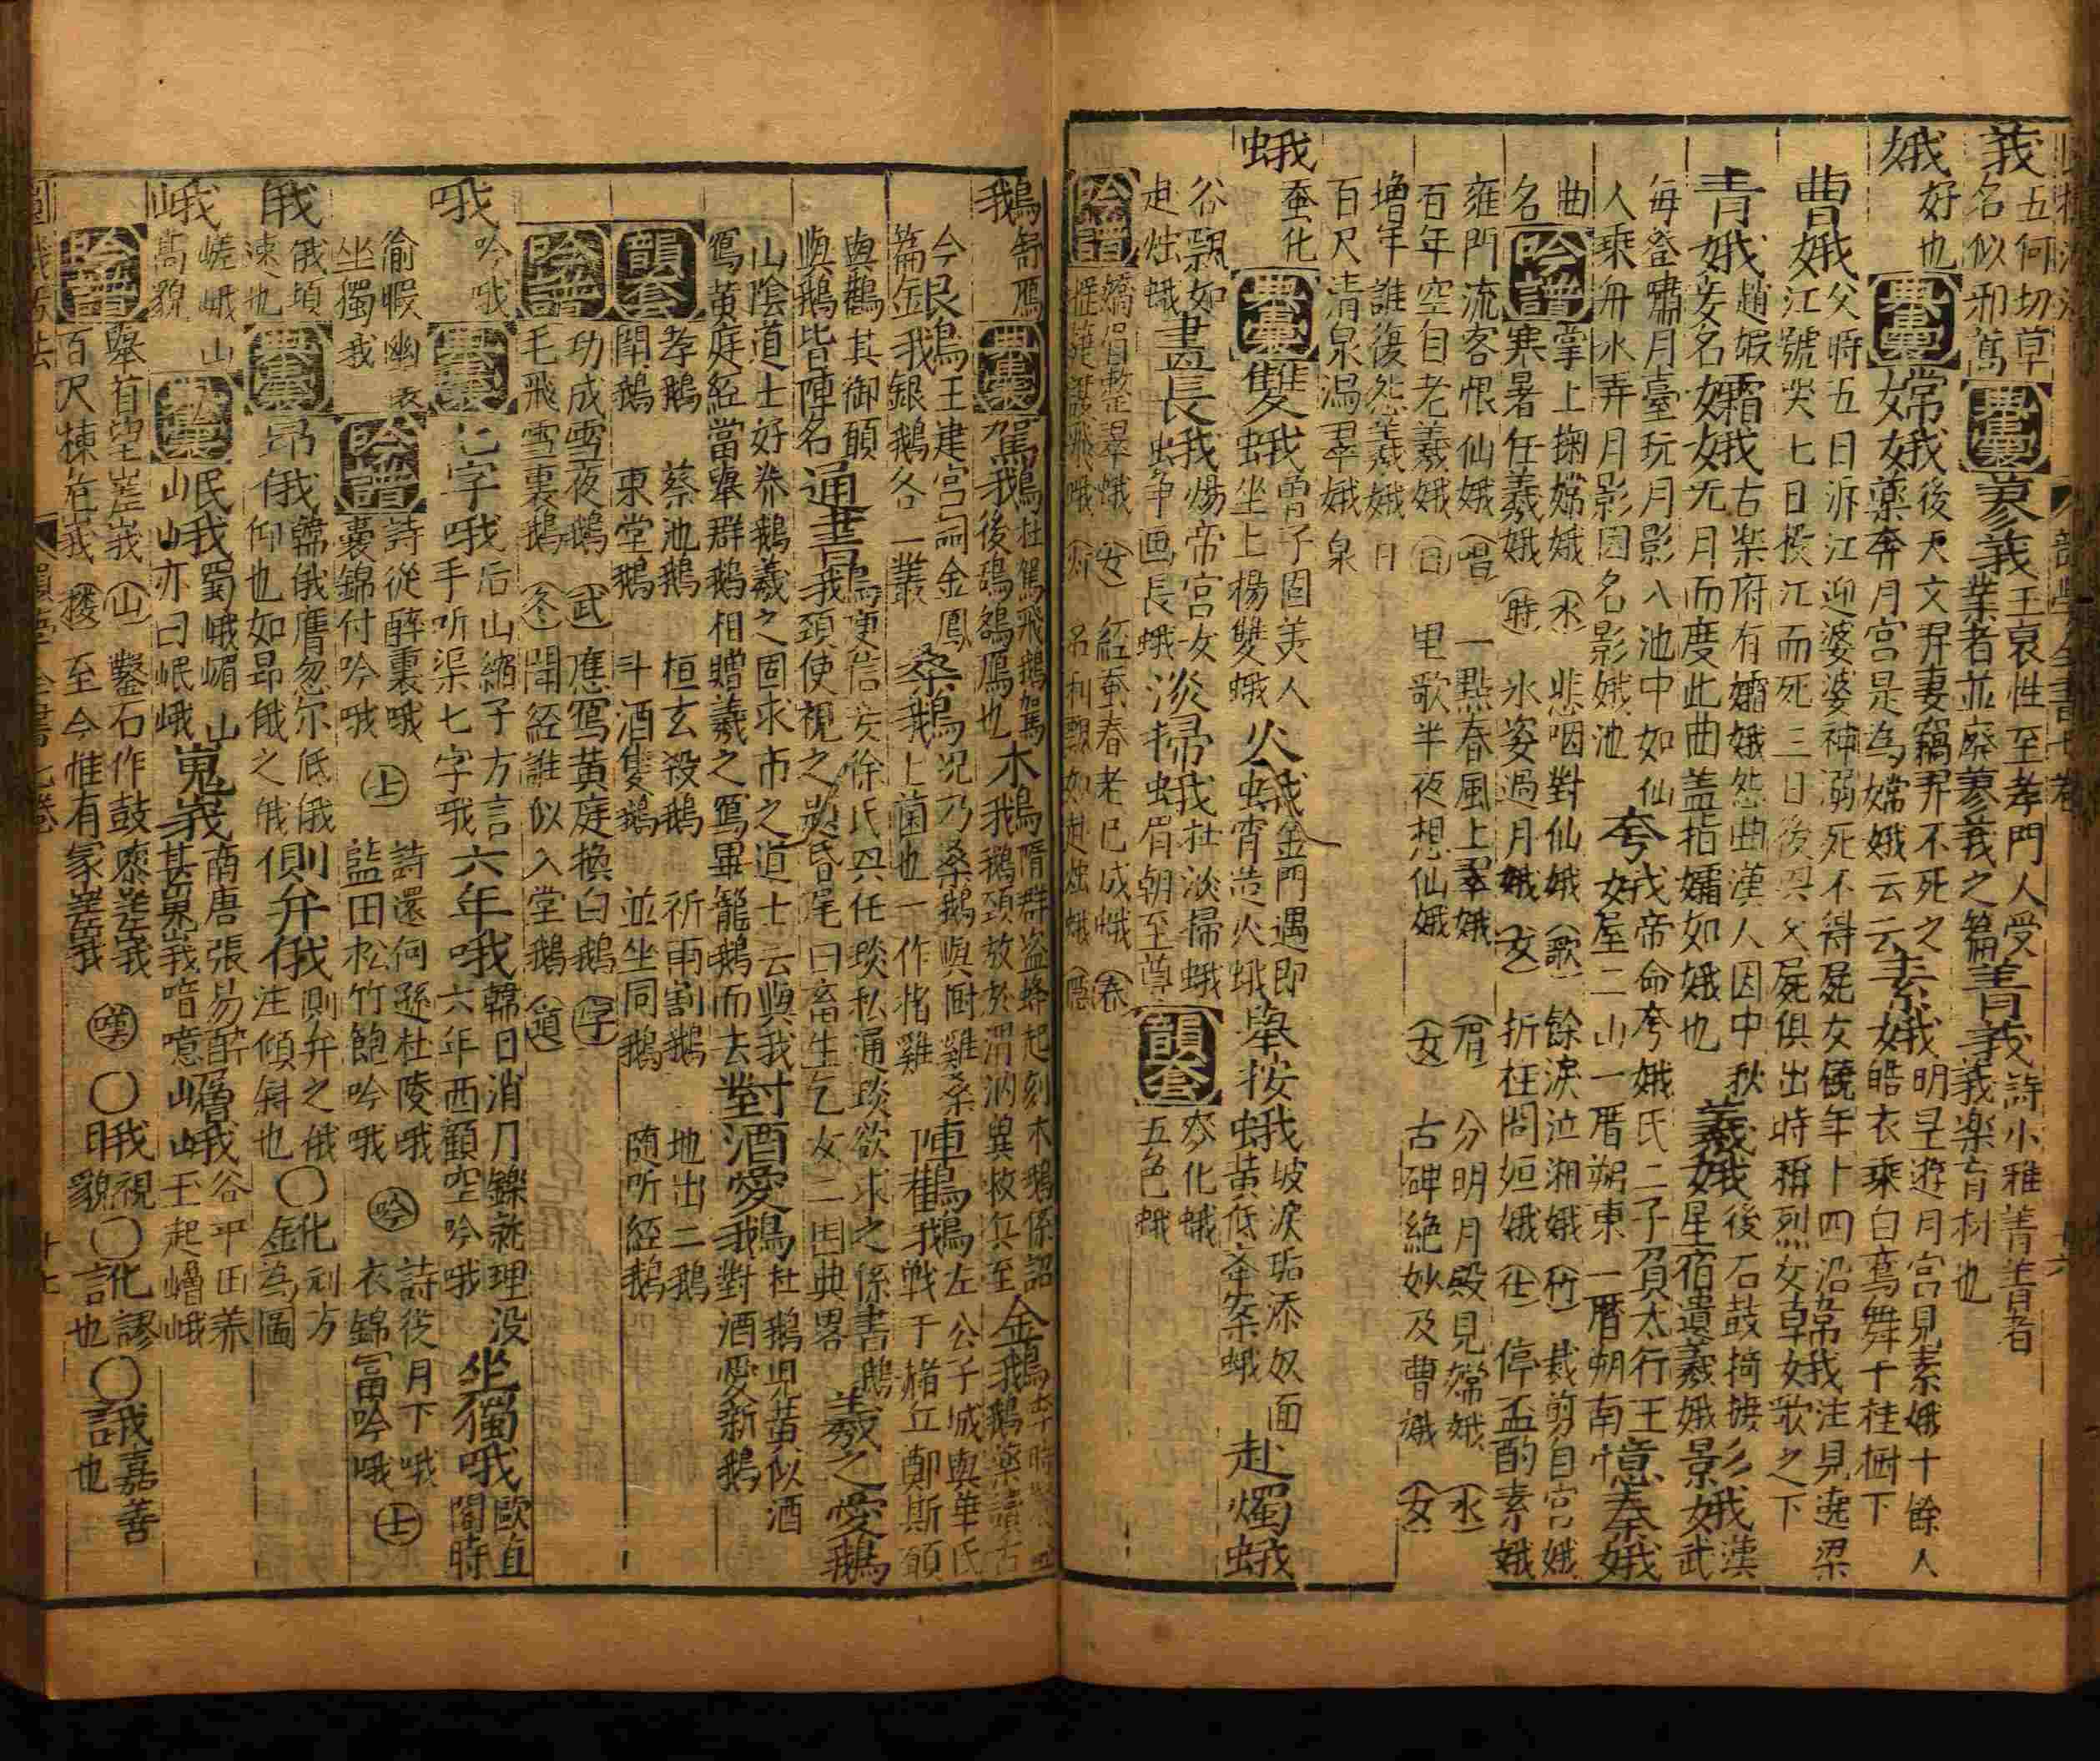 莪 五何切草名似邪蒿 典彙 蓼莪 王裒性至孝門人受業者並廢蓼莪之篇 菁莪 詩小雅菁菁者莪楽育材也
娥 好也 典彙 嫦娥 後天文羿妻竊羿不死之藥奔月宮是為嫦娥云云 素娥 明皇遊月宮見素娥十餘人皓衣乘白鸞舞于桂樹下
曹娥 父時五日泝江迎婆婆神溺死不得屍女年十四沿江號哭七日投江而死三日後與父屍俱出時稱烈女 韓娥 注見遶梁韓女歌之下
青娥 趙嘏妾名 孀娥 古楽府有孀娥怨曲漢人因中秋无月而度此曲盖指孀如娥也 羲娥 後石鼓掎摭星宿遺羲娥 影娥 漢武
每登嘯月臺玩月影入池中如仙人乘舟水弄月影因名影娥池 夸娥 帝命夸娥氏二子負太行王屋二山一厝朔東一厝朔南 憶秦娥
曲名 吟譜 掌上掬嫦娥 水 悲咽對仙娥 歌 餘淚泣湘娥 竹 裁剪自宮娥
寒暑任羲娥 時 氷姿過月娥 女 折枉問姮娥 仕 停盃酌素娥
雍門流客恨仙娥 唱 一點春風上翠娥 眉 分明月殿見嫦娥 水
百年空自老羲娥 日 里歌半夜想仙娥 女 古碑絶妙及曹娥 女
増年誰復怨羲娥 日
百尺清泉瀉翠娥 泉
蛾 蚕化 典彙 雙蛾 曹子固美人坐上楊雙蛾 火蛾 金門遇即宵造火蛾 舉按蛾 坡淚垢添奴面黃低奉案蛾 赴燭蛾
谷飄如赴烛蛾 畫長蛾 煬帝宮女爭画長蛾 淡掃蛾 杜淡掃蛾眉朝至尊 韻套 麥化蛾 五色蛾
吟譜 嬌眉整翠蛾 女 經蚕春老已成蛾 春
飛蛾 名利飄如赴烛蛾
鵝 舒鴈 典彙 駕鵝 杜駕飛鵝駕後鵝鴈也 木鵝 隋群盗蜂起刻木鵝係詔鵝頚放於渭汭冀救兵至 金鵝
今艮篇金鵝銀鵝各一叢 王建宮詞金鳳 桑鵝 况乃桑鵝與厨雞桑上菌也一作楮雞 陣鸛鵝 左公子城與華氏戦于楮丘鄭斯願
與鸛其御願與鵝皆陣名 通書鵝 庾信妾徐氏與任琰私通琰欲求之係書鵝頚使視之娱昏尾曰畜生乞女二因典畧 羲之愛鵝
山陰道士好养鵝羲之固求市之道士云與我寫黃庭經當舉群鵝相贈羲之寫畢籠鵝而去 對酒愛鵝 杜鵝兒黃似酒對酒愛新鵝
韻套 孝鵝 蔡池鵝 桓玄殺鵝 祈雨割鵝 地出二鵝
閗鵝 東堂鵝 斗酒隻鵝 並坐同鵝 随听經鵝
吟譜 功成雪夜鵝 武 應寫黃庭換白鵝 字
毛飛雪裏鵝 冬 聞經誰似入堂鵝 道
哦 吟哦 典彙 七字哦 后山縮手方言手听渠七字哦 六年哦 韓日消月鑠就理没六年西顧空吟哦 坐獨哦 歐直閣時
偷暇幽坐獨哦 吟譜 詩從醉裏哦 上 詩還何遜杜陵哦 吟 詩從月下哦
囊錦付吟哦 藍田松竹飽吟哦 衣錦富吟哦 士
俄 俄頃速也 典彙 昂俄 韓俄膺忽尔低俄仰也如昂俄之俄 側弁俄 側弁之俄注傾斜也 〇 吪刓方金為圖
峨 嵯峨山高貌 典彙 岷峨 蜀峨嵋山岷山峨亦曰岷峨 嵬峩 南唐張易醉甚嵬峩喑噫 嶆峨 谷平田养玉起嶆峨
吟譜 舉首望嵳峩 山 鑿石作鼓隳嵳峩 嘆 〇 睋視貌 〇 訛謬言也 〇 誐嘉善也
百尺棟危峩 樓 至今惟有冢嵳峩